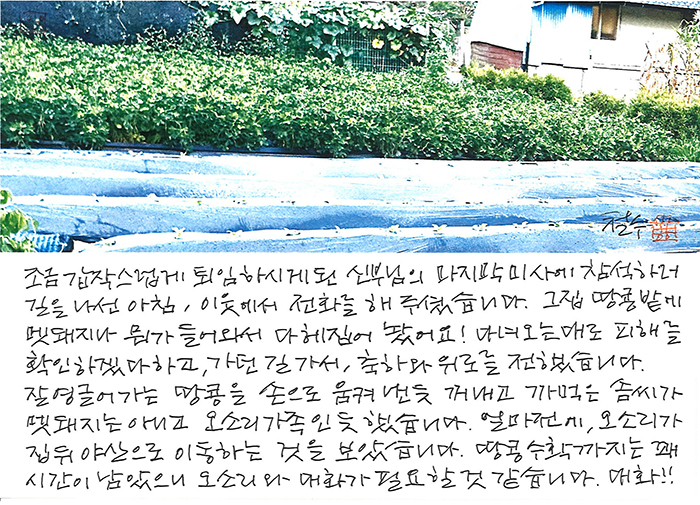 철수
조금 갑작스럽게 퇴임하시게된 신부님의 마지막미사에 참석하러
길을 나선 아침, 이웃에서 전화를 해 주셨습니다. 그집 땅콩밭에
멧돼지나 뭐가 들어와서 다헤집어 놨어요! 다녀오는대로 피해를
확인하겠다하고, 가던 길가서, 축하와 위로를 전했습니다.
잘영글어가는 땅콩을 손으로 움켜 낸듯 꺼내고 까먹은 솜씨가
멧돼지는 아니고 오소리가족인듯 했습니다. 얼마전에, 오소리가
집뒤 야산으로 이동하는 것을 보았습니다. 땅콩수확까지는 꽤
시간이 남았으니 오소리와 대화가 필요할것 같습니다. 대화!!